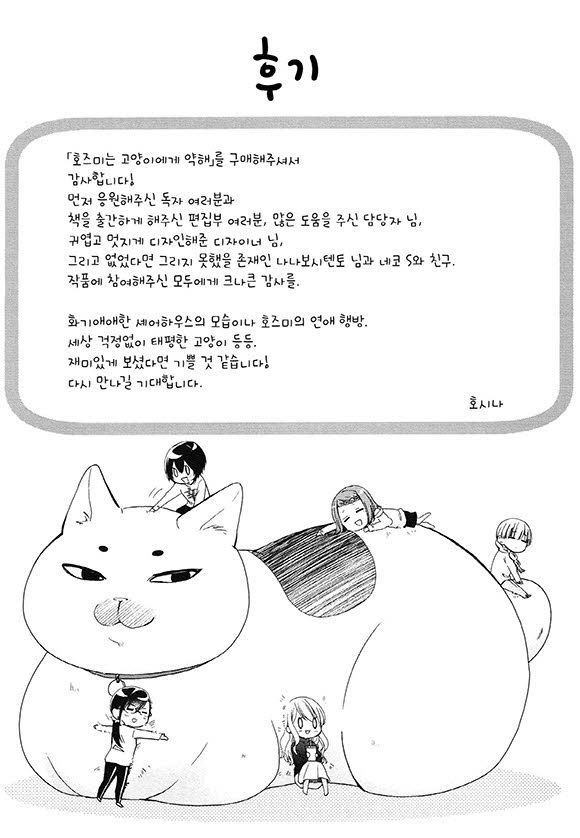 후기
「호즈미는 고양이에게 약해」를 구매해주셔서
감사합니다!
먼저 응원해주신 독자 여러분과
책을 출간하게 해주신 편집부 여러분, 많은 도움을 주신 담당자 님,
귀엽고 멋지게 디자인해준 디자이너 님,
그리고 없었다면 그리지 못했을 존재인 나나보시텐토 님과 네코 S와 친구.
작품에 참여해주신 모두에게 크나큰 감사를.
화기애애한 셰어하우스의 모습이나 호즈미의 연애 행방.
세상 걱정없이 태평한 고양이 등등.
재미있게 보셨다면 기쁠 것 같습니다!
다시 만나길 기대합니다.
호시나